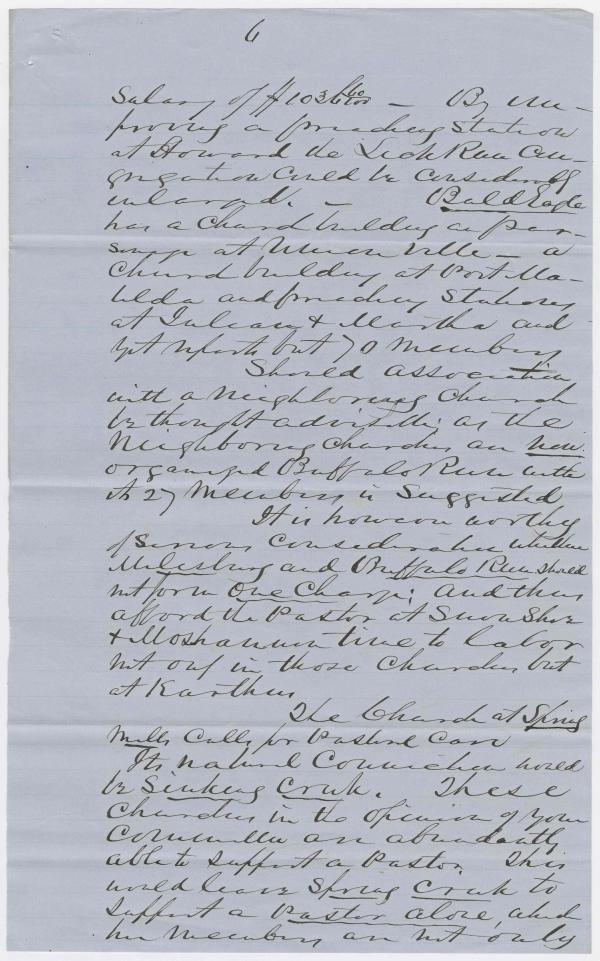 6
Salary of $1036 60/100 — By im-
proving a preaching station
at Howard the Lick Run con-
gregation could be considerably
enlarged. — Bald Eagle
has a church building a par-
sonage at Unionville — a
church building at Port Ma-
tilda and preaching stations
at Julian & Martha and
yet reports but 70 members
Should association
with a neighboring church
be thought advisable; as the
neighboring churches are now
organized Buffalo Run with
its 27 members is suggested
It is however worthy
of serious consideration whether
Milesburg and Buffalo Run should
not form one charge; and thus
afford the Pastor at Snow Shoe
& Moshannon time to labor
not only in those churches but
at Karthus
The Church at Spring
Mills calls for Pastoral Care
Its natural connection would
be Sinking Creek. These
churches in the opinion of your
Committee are abundantly
able to support a Pastor. This
would leave Spring Creek to
support a Pastor alone, which
her members are not only